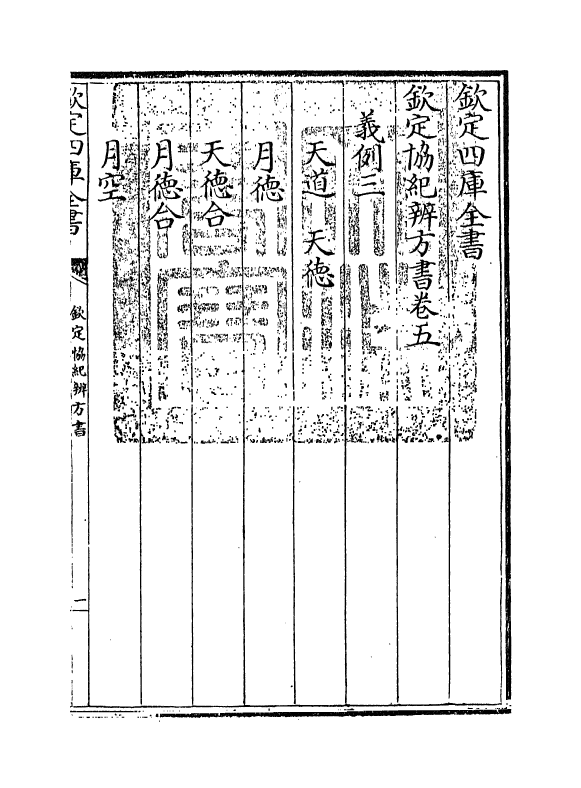 欽定四庫全書
欽定協紀辨方書卷五
義例三
天道　天徳
月徳
天徳合
月徳合
月空
欽定四庫全書
欽定協紀辨方書